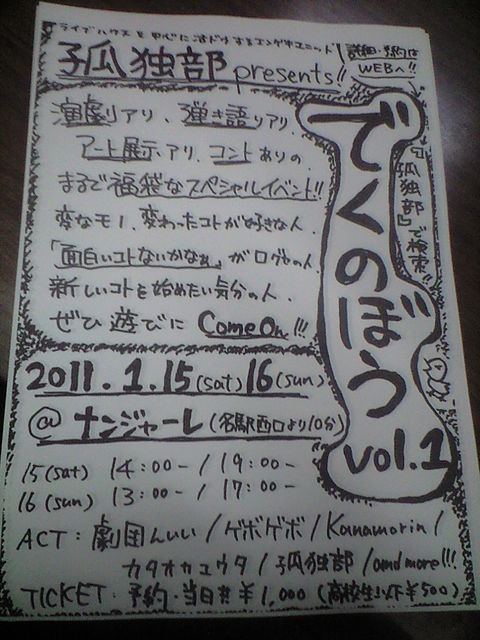 ライブハウスを中心に活動するエンゲキユニット
孤独部 presents!!
詳細・予約は
WEBへ!!
『孤独部』で検索!!
でくのぼう
vol.1
演劇アリ、弾き語りアリ、
アート展示アリ、コントありの、
まるで福袋なスペシャルイベント!!
変なモノ、変わったコトが好きな人、
「面白いコトないかなぁ」がログセの人、
新しいコトを始めたい気分の人、
ぜひ遊びに Come On!!!
2011.1.15(sat)16(sun)
@ナンジャーレ(名駅西口より10分)
15(sat) 14:00-/19:00-
16(sun) 13:00-/17:00-
ACT:劇団んいい/ゲボゲボ/Kanamorin/
カタオカユウタ/孤独部/and more!!!
TICKET:予約・当日共¥1,000(高校生以下¥500)